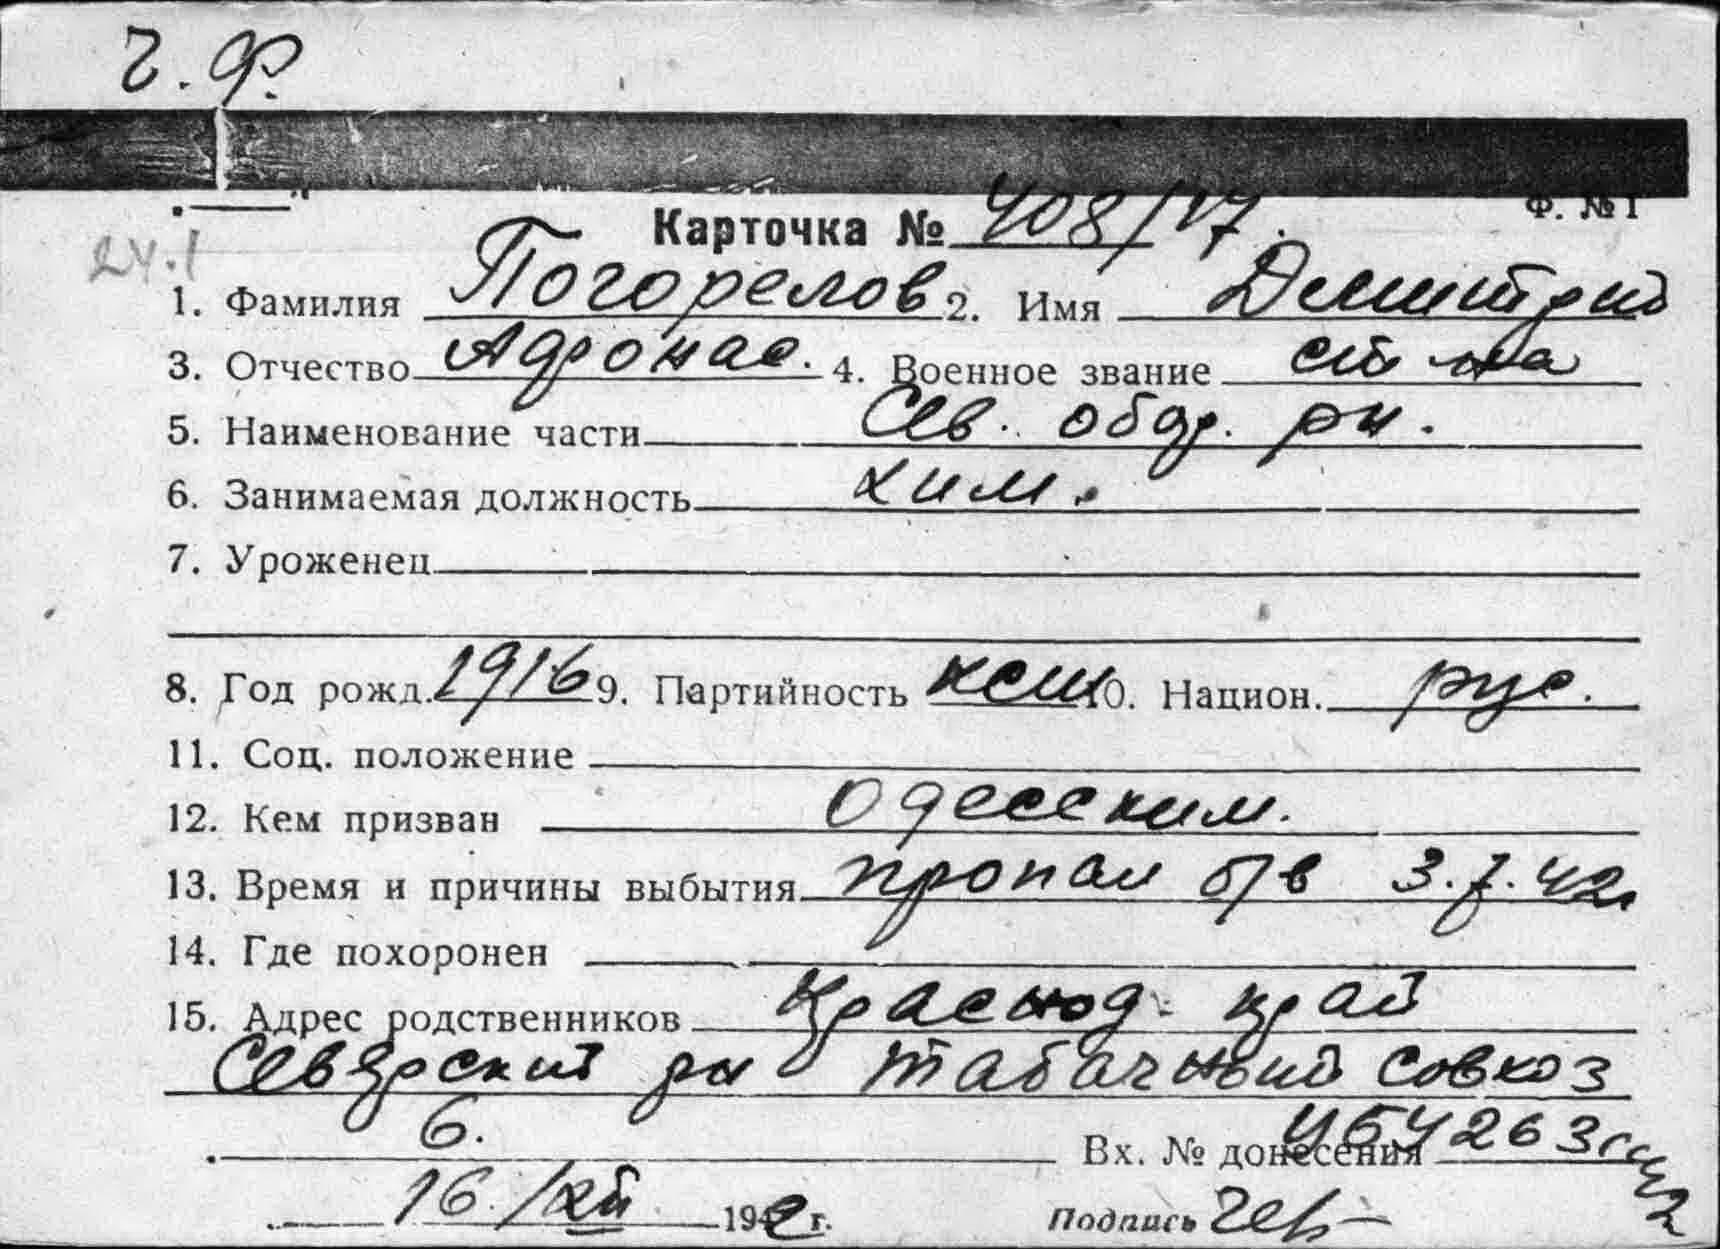 г. Ф.
Ф. № 1
Карточка № 408/17.
24.1
1. Фамилия Погорелов 2. Имя Дмитрий
3. Отчество Афонас. 4. Военное звание
5. Наименование части Сев. обор. рн.
6. Занимаемая должность хим.
7. Уроженец
8. Год рожд. 1916 9. Партийность ксм 10. Национ. рус.
11. Соц. положение
12. Кем призван Одесским.
13. Время и причины выбытия пропал б/в 3.7.42г
14. Где похоронен
15. Адрес родственников Краснод. край
Северский рн Табачный совхоз
6. Вх. № донесения
16. /XII 1942 г. Подпись